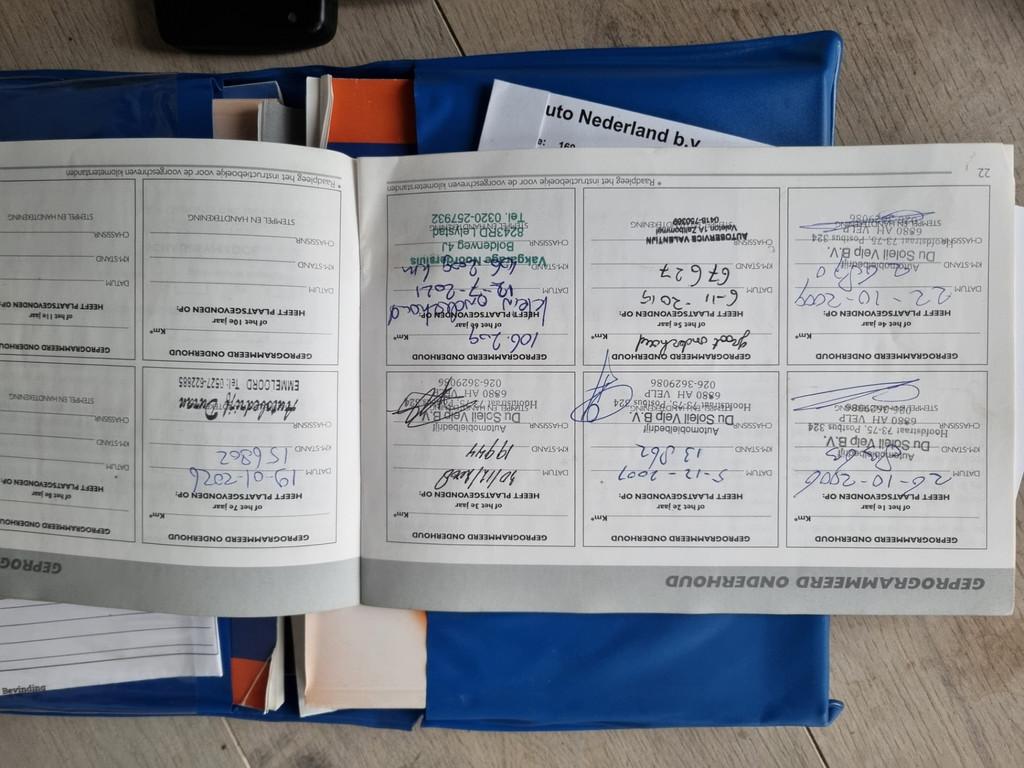 uto Nederland b.v.
GEPROGRAMMEERD ONDERHOUD
GEPROGRAMMEERD ONDERHOUD
of het 1e jaar
Km*
HEEFT PLAATSGEVONDEN OP:
DATUM 26-10-2006
KM-STAND
Automobielbedrijf
Du Soleil Velp B.V.
CHASSISNR.
Hoofdstraat 73-75, Postbus 324
6880 AH VELP
STEMPEL EN HANDTEKENING
026-3629086
GEPROGRAMMEERD ONDERHOUD
of het 2e jaar
Km*
HEEFT PLAATSGEVONDEN OP:
DATUM 5-12-2007
KM-STAND 13.862
Automobielbedrijf
CHASSISNR.
Du Soleil Velp B.V.
Hoofdstraat 73-75, Postbus 324
STEMPEL EN HANDTEKENING
6880 AH VELP
026-3629086
GEPROGRAMMEERD ONDERHOUD
of het 3e jaar
Km*
HEEFT PLAATSGEVONDEN OP:
DATUM
KM-STAND 19944
Automobielbedrijf
CHASSISNR.
Du Soleil Velp B.V.
STEMPEL EN HANDTEKENING
6880 AH VELP
026-3629086
GEPROGRAMMEERD ONDERHOUD
of het 4e jaar
Km*
HEEFT PLAATSGEVONDEN OP:
DATUM 22-10-2009
KM-STAND
Automobielbedrijf
Du Soleil Velp B.V.
CHASSISNR.
Hoofdstraat 73-75, Postbus 324
6880 AH VELP
026-3629086
GEPROGRAMMEERD ONDERHOUD
groot onderhoud
of het 5e jaar
Km*
HEEFT PLAATSGEVONDEN OP:
DATUM 6-11-2015
KM-STAND 67627
CHASSISNR.
AUTOSERVICE VALENTIJN
Valeton 1A Zaltbommel
0418-750369
STEMPEL EN HANDTEKENING
GEPROGRAMMEERD ONDERHOUD
106.209
of het 6e jaar
Km*
HEEFT PLAATSGEVONDEN OP:
klein onderhoud
DATUM 12-7-2021
KM-STAND
Vakgarage Noordersluis
Bolderweg 4J
CHASSISNR.
8243RD Lelystad
STEMPEL EN HANDTEKENING
Tel. 0320-257932
* Raadpleeg het instructieboekje voor de voorgeschreven kilometerstanden
22
GEPROG
GEPROGRAMMEERD ONDERHOUD
of het 7e jaar
Km*
HEEFT PLAATSGEVONDEN OP:
DATUM 19-01-2026
KM-STAND 156802
CHASSISNR.
EMMELOORD Tel: 0527-622885
GEPROGRAMMEERD ONDERHOUD
of het 8e jaar
HEEFT PLAATSGEVONDEN OP:
DATUM
KM-STAND
CHASSISNR.
STEMPEL EN HANDTEKENING
GEPROGRAMMEERD ONDERHOUD
of het 10e jaar
Km*
HEEFT PLAATSGEVONDEN OP:
DATUM
KM-STAND
CHASSISNR.
STEMPEL EN HANDTEKENING
GEPROGRAMMEERD ONDERHOUD
of het 11e jaar
HEEFT PLAATSGEVONDEN OP:
DATUM
KM-STAND
CHASSISNR.
STEMPEL EN HANDTEKENING
* Raadpleeg het instructieboekje voor de voorgeschreven kilometerstanden
Bevinding